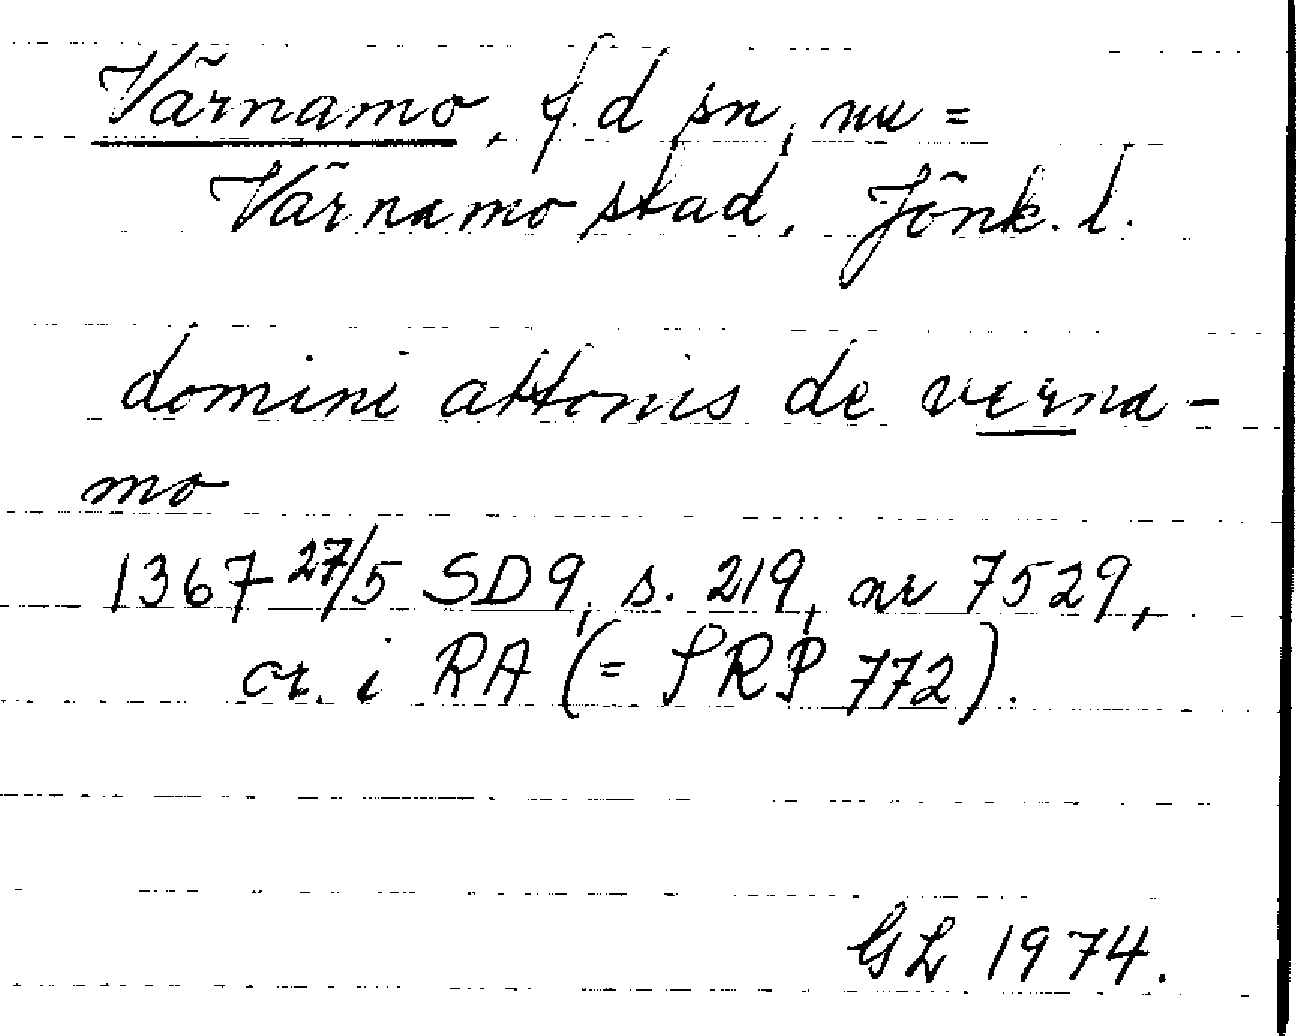 Värnamo, f.d sn, nu =
Värnamo stad, Jönk. l.
domini attonis de verna-
mo
1367 27/5 SD9, s. 219, nr 7529,
or. i RA (= SRP 772).
GL 1974.